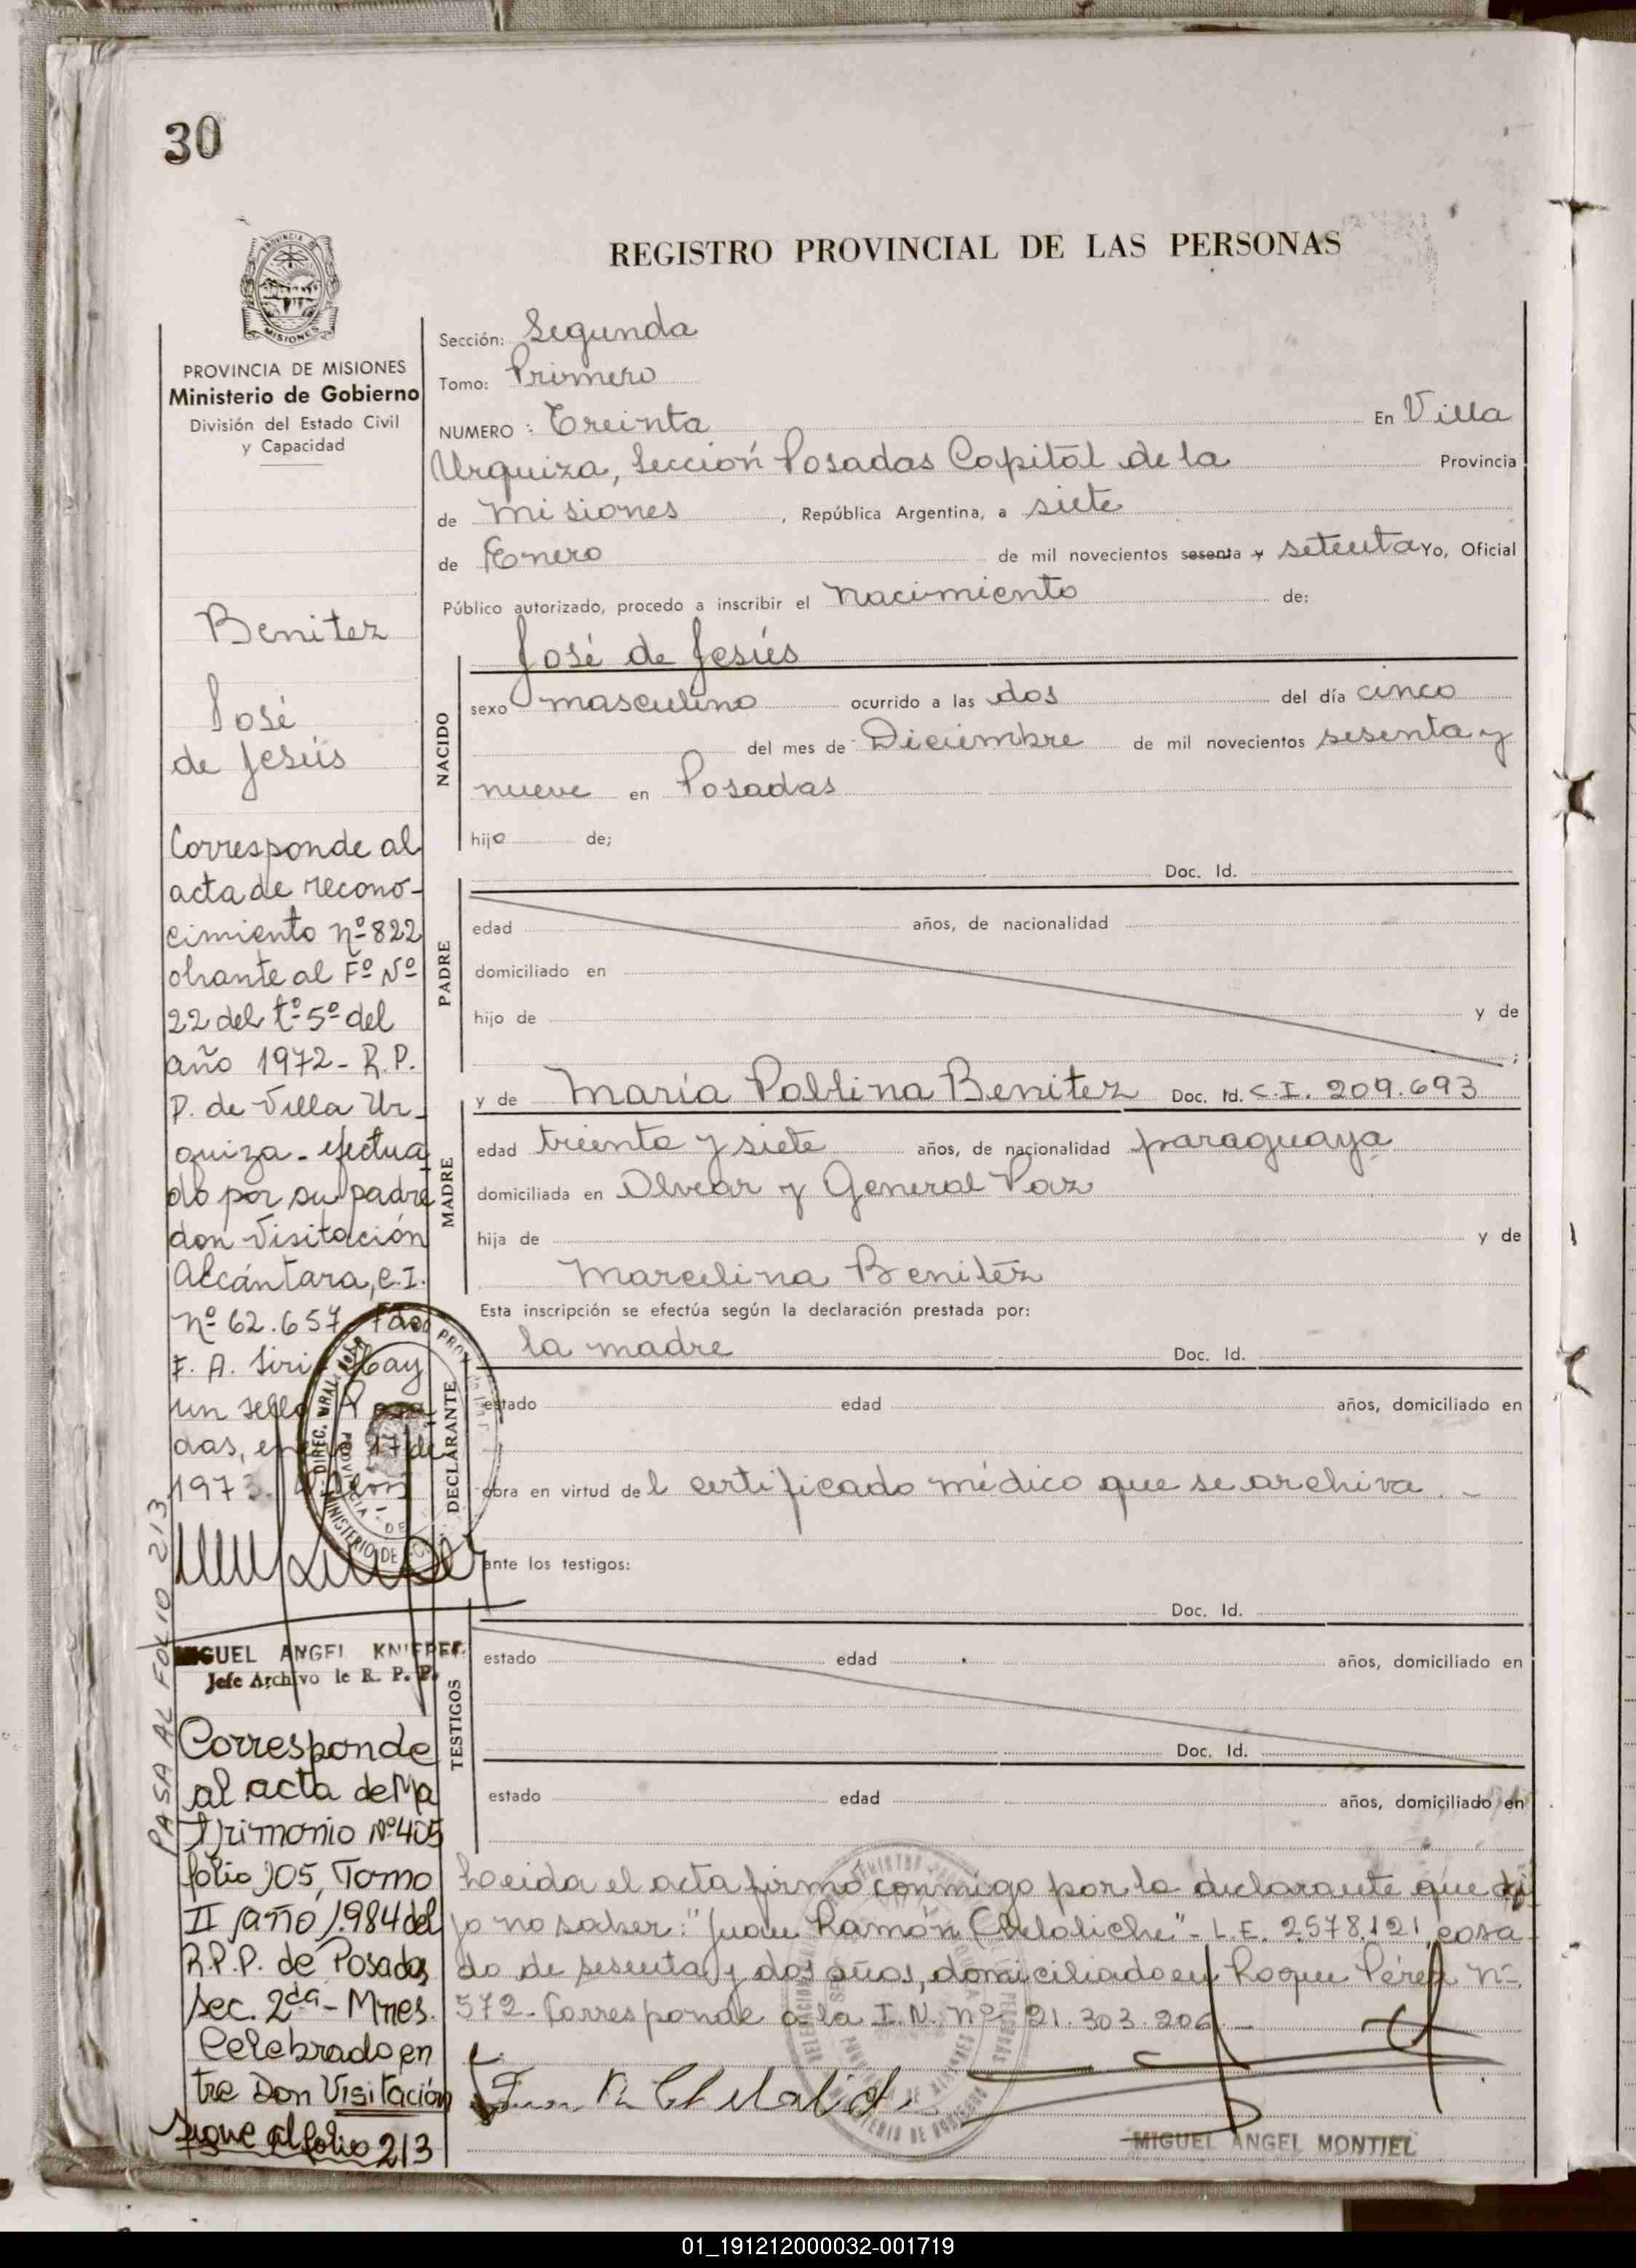 30
REGISTRO PROVINCIAL DE LAS PERSONAS
MISIONES
PROVINCIA DE MISIONES
Ministerio de Gobierno
División del Estado Civil
y Capacidad
Benitez
José
de Jesús
Corresponde al
acta de recono-
cimiento nº 822
obrante al Fº Nº
22 del tº 5º del
año 1972 - R. P.
P. de Villa Ur-
quiza - efectua
do por su padre
don Visitación
Alcántara, C.I.
nº 62.657. Fdo
F. A. Siri Hay
un sello Posa
das, enero 17 de
1973.
MIGUEL ANGEL
Jefe Archivo de R. P. P.
PASA AL FOLIO 213
Corresponde
al acta de Ma
trimonio Nº 405
folio 105, Tomo
II año 1.984 del
R.P.P. de Posadas
sec. 2da - Mnes.
Celebrado en
tre Don Visitación
sigue al folio 213
Sección: Segunda
Tomo: Primero
NUMERO: Treinta En Villa
Urquiza, Sección Posadas Capital de la Provincia
de Misiones, República Argentina, a siete
de Enero de mil novecientos sesenta y setenta Yo, Oficial
Público autorizado, procedo a inscribir el nacimiento de:
José de Jesús
NACIDO
sexo masculino ocurrido a las dos del día cinco
del mes de Diciembre de mil novecientos sesenta y
nueve en Posadas
hijo de;
Doc. Id.
PADRE
edad años, de nacionalidad
domiciliado en
hijo de y de
;
MADRE
y de María Pablina Benitez Doc. Id. C.I. 209.693
edad treinta y siete años, de nacionalidad paraguaya
domiciliada en Alvear y General Paz
hija de y de
Marcelina Benitez
Esta inscripción se efectúa según la declaración prestada por:
la madre Doc. Id.
DECLARANTE
estado edad años, domiciliado en
obra en virtud del certificado médico que se archiva.-
ante los testigos:
Doc. Id.
TESTIGOS
estado edad años, domiciliado en
Doc. Id.
estado edad años, domiciliado en
Leida el acta firmó conmigo por la declarante que di
jo no saber: "Juan Ramón - L.E. 2.578.121, casa-
do de sesenta y dos años, domiciliado en Roque Pérez nº
572 - Corresponde a la I.N. nº 21.303.206 -
MIGUEL ANGEL MONTIEL
01_191212000032-001719